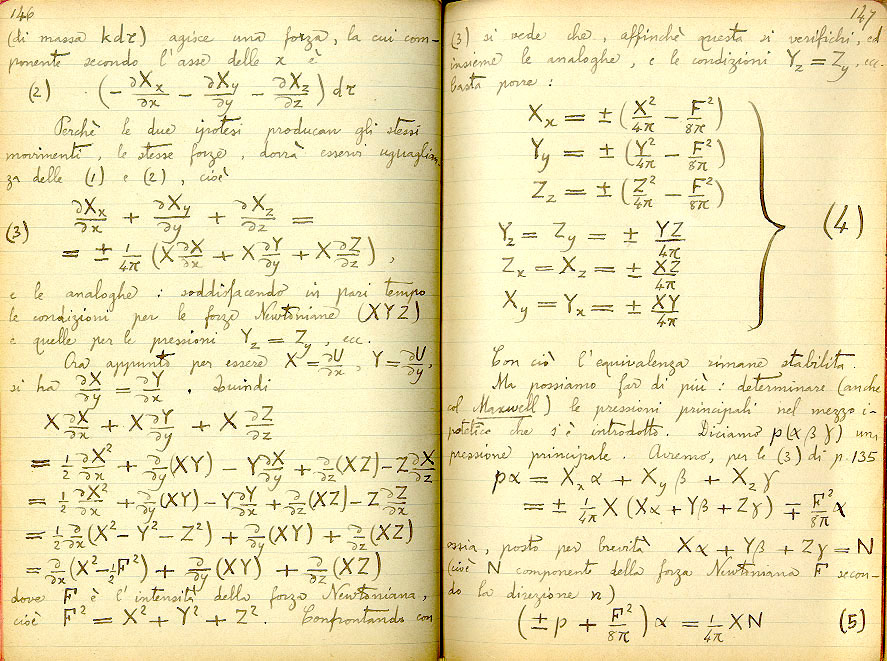 146
(di massa kdτ) agisce una forza, la cui com-
ponente secondo l'asse delle x è
(2) (-∂Xx/∂x - ∂Xy/∂y - ∂Xz/∂z) dτ
Perchè le due ipotesi producan gli stessi
movimenti, le stesse forze, dovrà esservi uguaglian-
za delle (1) e (2), cioè
(3) ∂Xx/∂x + ∂Xy/∂y + ∂Xz/∂z =
= ± 1/4π (X ∂X/∂x + X ∂Y/∂y + X ∂Z/∂z),
e le analoghe: soddisfacendo in pari tempo
le condizioni per le forze Newtoniane (XYZ)
e quelle per le pressioni Yz = Zy, ecc.
Ora appunto per essere X = ∂U/∂x, Y = ∂U/∂y,
si ha ∂X/∂y = ∂Y/∂x. Quindi
X ∂X/∂x + X ∂Y/∂y + X ∂Z/∂z
= 1/2 ∂X²/∂x + ∂/∂y (XY) - Y ∂X/∂y + ∂/∂z (XZ) - Z ∂X/∂z
= 1/2 ∂X²/∂x + ∂/∂y (XY) - Y ∂Y/∂x + ∂/∂z (XZ) - Z ∂Z/∂x
= 1/2 ∂/∂x (X² - Y² - Z²) + ∂/∂y (XY) + ∂/∂z (XZ)
= ∂/∂x (X² - 1/2 F²) + ∂/∂y (XY) + ∂/∂z (XZ)
dove F è l'intensità della forza Newtoniana,
cioè F² = X² + Y² + Z². Confrontando con
147
(3) si vede che, affinchè questa si verifichi, ed
insieme le analoghe, e le condizioni Yz = Zy, ecc.
basta porre:
Xx = ± (X²/4π - F²/8π)
Yy = ± (Y²/4π - F²/8π)
Zz = ± (Z²/4π - F²/8π)
Yz = Zy = ± YZ/4π
(4)
Zx = Xz = ± XZ/4π
Xy = Yx = ± XY/4π
Con ciò l'equivalenza rimane stabilita.
Ma possiamo far di più: determinare (anche
col Maxwell) le pressioni principali nel mezzo i-
potetico che s'è introdotto. Diciamo p(αβγ) una
pressione principale. Avremo, per le (3) di p. 135
pα = Xx α + Xy β + Xz γ
= ± 1/4π X (Xα + Yβ + Zγ) ∓ F²/8π α
ossia, posto per brevità Xα + Yβ + Zγ = N
(cioè N componente della forza Newtoniana F secon-
do la direzione n)
(±p + F²/8π) α = 1/4π XN (5)